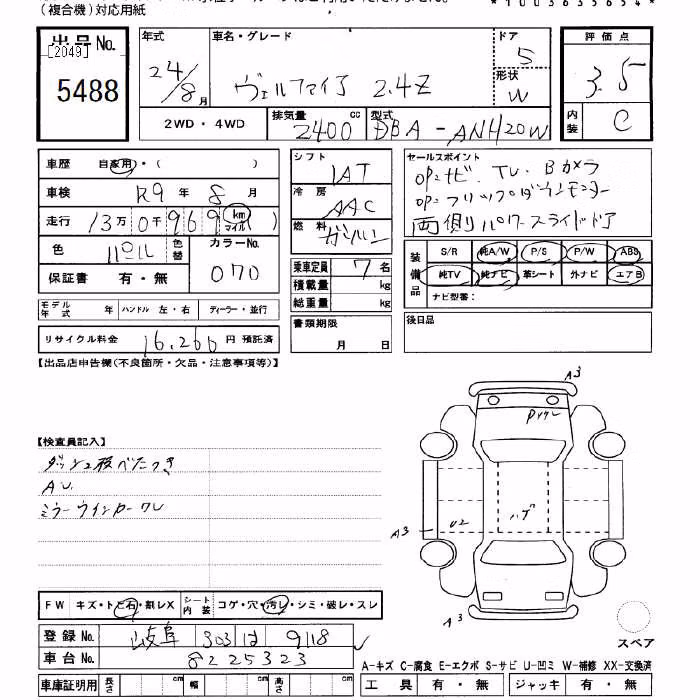 (複合機)対応用紙
*1003635654*
出品No. [2049] 5488
年式 24/8月
車名・グレード ヴェルファイア 2.4Z
ドア 5
形状 W
評価点 3.5
内装 C
2WD・4WD
排気量 2400 cc
型式 DBA-ANH20W
車歴 自家用・( )
車検 R9年 8月
走行 13万0千969 km マイル
色 パール 色替
カラーNo. 070
保証書 有・無
モデル年式 年 ハンドル 左・右 ディーラー・並行
リサイクル料金 16,260 円 預託済
シフト IAT
冷房 AAC
燃料 ガソリン
乗車定員 7名
積載量 kg
総重量 kg
書類期限 月 日
セールスポイント
OP.ナビ.TV.Bカメラ
OP.フリップダウンモニター
両側パワースライドドア
装備品 S/R 純A/W P/S P/W ABS
純TV 純ナビ 革シート 外ナビ エアB
ナビ型番:
後日品
【出品店申告欄(不良箇所・欠品・注意事項等)】
【検査員記入】
ダッシュ板べたつき
AU.
ミラーウインカーワレ
A3
Pワレ
A3
U2
ハゲ
A3
スペア
FW キズ・トビ石・割レX シート内装 コゲ・穴・汚レ・シミ・破レ・スレ
登録No. 岐阜 303 は 9118
車台No. 8225323
車庫証明用 長さ cm 幅 cm 高さ cm
A-キズ C-腐食 E-エクボ S-サビ U-凹ミ W-補修 XX-交換済
工具 有・無 ジャッキ 有・無